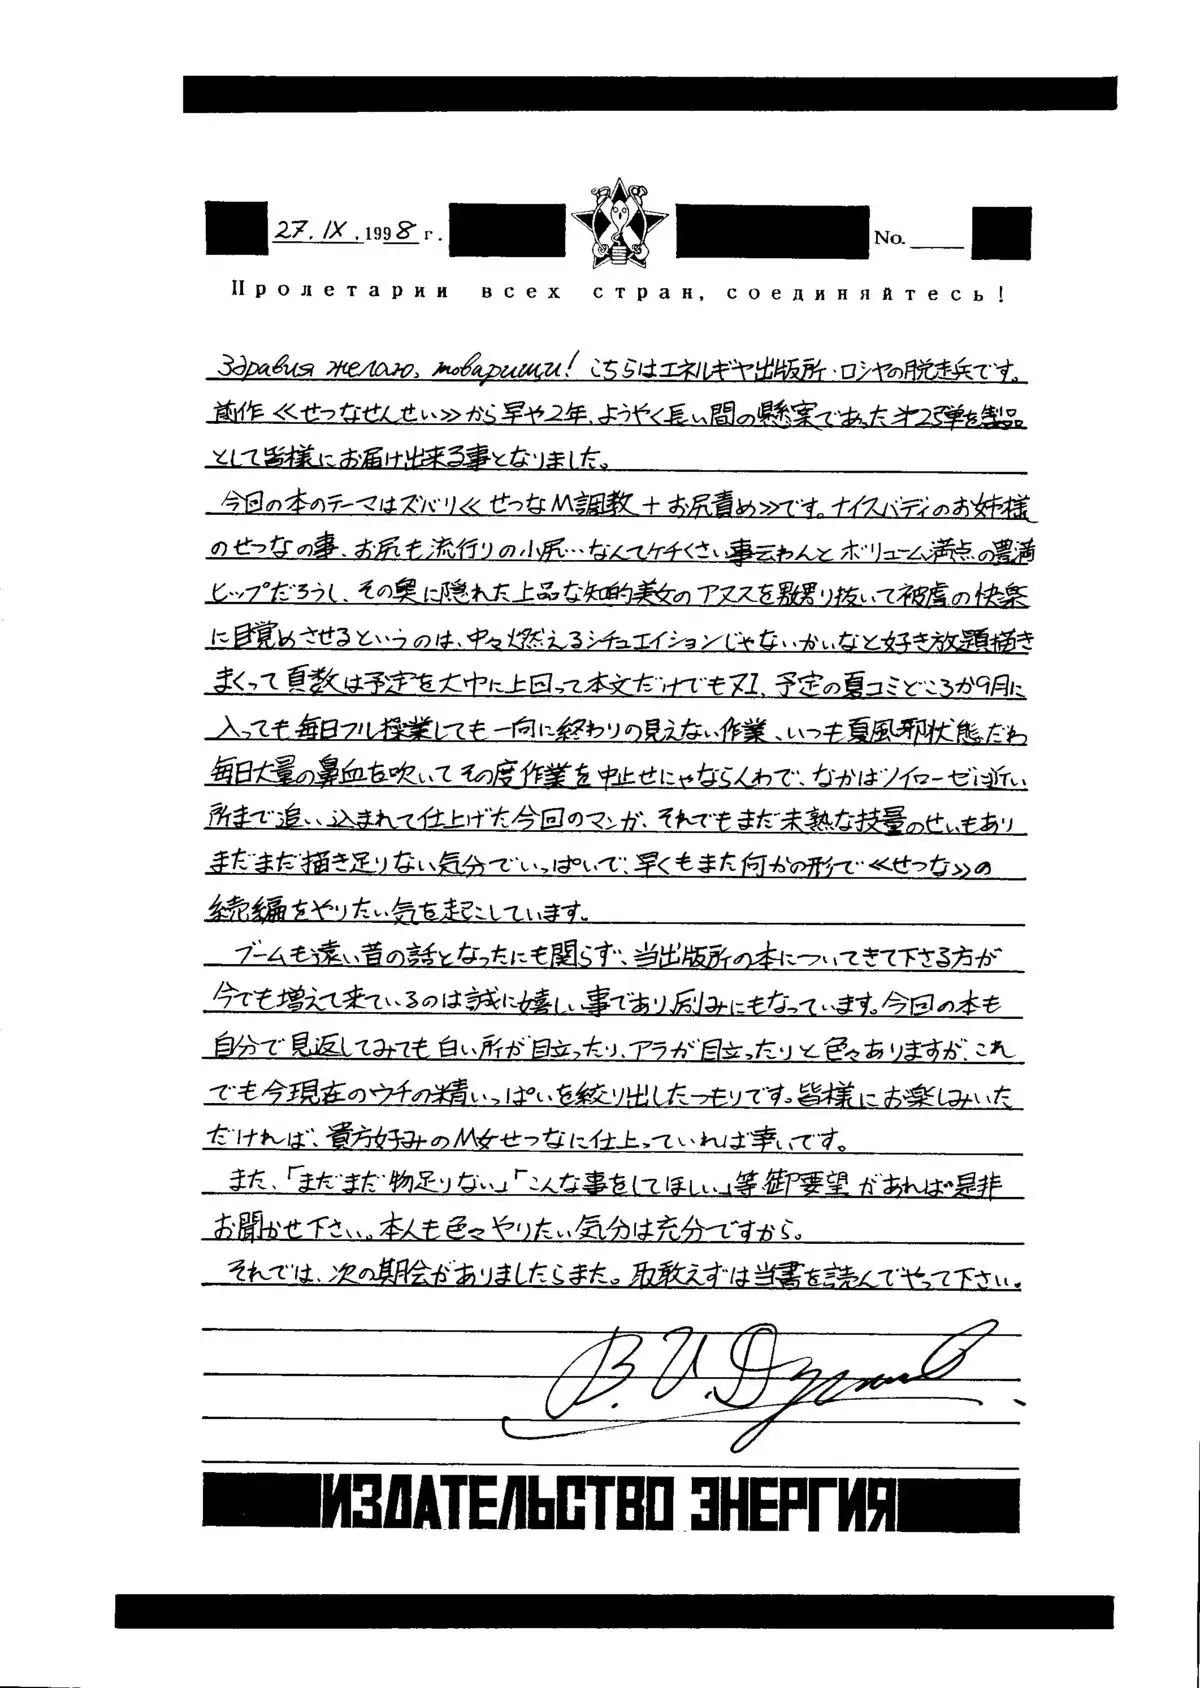 27. IX. 1998 г. No.
Пролетарии всех стран, соединяйтесь!
Здравия желаю, товарищи! こちらはエネルギヤ出版所・ロシヤの脱走兵です。
前作≪せつなせんせい≫から早や2年、ようやく長い間の懸案であった第2弾を製品
として皆様にお届け出来る事となりました。
今回の本のテーマはズバリ≪せつなM調教+お尻責め≫です。ナイスバディのお姉様
のせつなの事、お尻も流行りの小尻…なんてケチくさい事云わんとボリューム満点の豊満
ヒップだろうし、その奥に隠れた上品な知的美女のアヌスを嬲り抜いて被虐の快楽
に目覚めさせるというのは、中々燃えるシチュエイションじゃないかいなと好き放題描き
まくって頁数は予定を大巾に上回って本文だけでも71、予定の夏コミどころか9月に
入っても毎日フル操業しても一向に終わりの見えない作業、いつも夏風邪状態だわ
毎日大量の鼻血を吹いてその度作業を中止せにゃならんわで、なかばノイローゼに近い
所まで追い込まれて仕上げた今回のマンガ、それでもまだ未熟な技量のせいもあり
まだまだ描き足りない気分でいっぱいで、早くもまた何かの形で≪せつな≫の
続編をやりたい気を起こしています。
ブームも遠い昔の話となったにも関らず、当出版所の本についてきて下さる方が
今でも増えて来ているのは誠に嬉しい事であり励みにもなっています。今回の本も
自分で見返してみても白い所が目立ったり、アラが目立ったりと色々ありますが、これ
でも今現在のウチの精いっぱいを絞り出したつもりです。皆様にお楽しみいた
だければ、貴方好みのM女せつなに仕上っていれば幸いです。
また、「まだまだ物足りない」「こんな事をしてほしい」等御要望があれば是非
お聞かせ下さい。本人も色々やりたい気分は充分ですから。
それでは、次の期会がありましたらまた。取敢えずは当書を読んでやって下さい。
В. И. Д
ИЗДАТЕЛЬСТВО ЭНЕРГИЯ